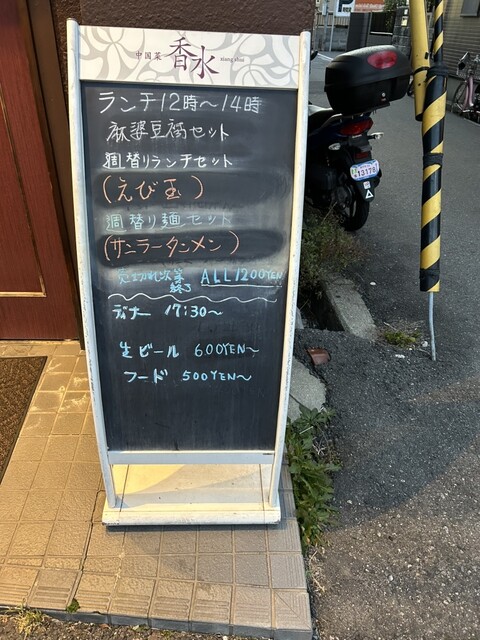 中国菜 香水 xiang shui
ランチ12時〜14時
麻婆豆腐セット
週替りランチセット
(えび玉)
週替り麺セット
(サンラータンメン)
売切れ次第終了 ALL1200YEN
ディナー 17:30〜
生ビール 600YEN〜
フード 500YEN〜
13178